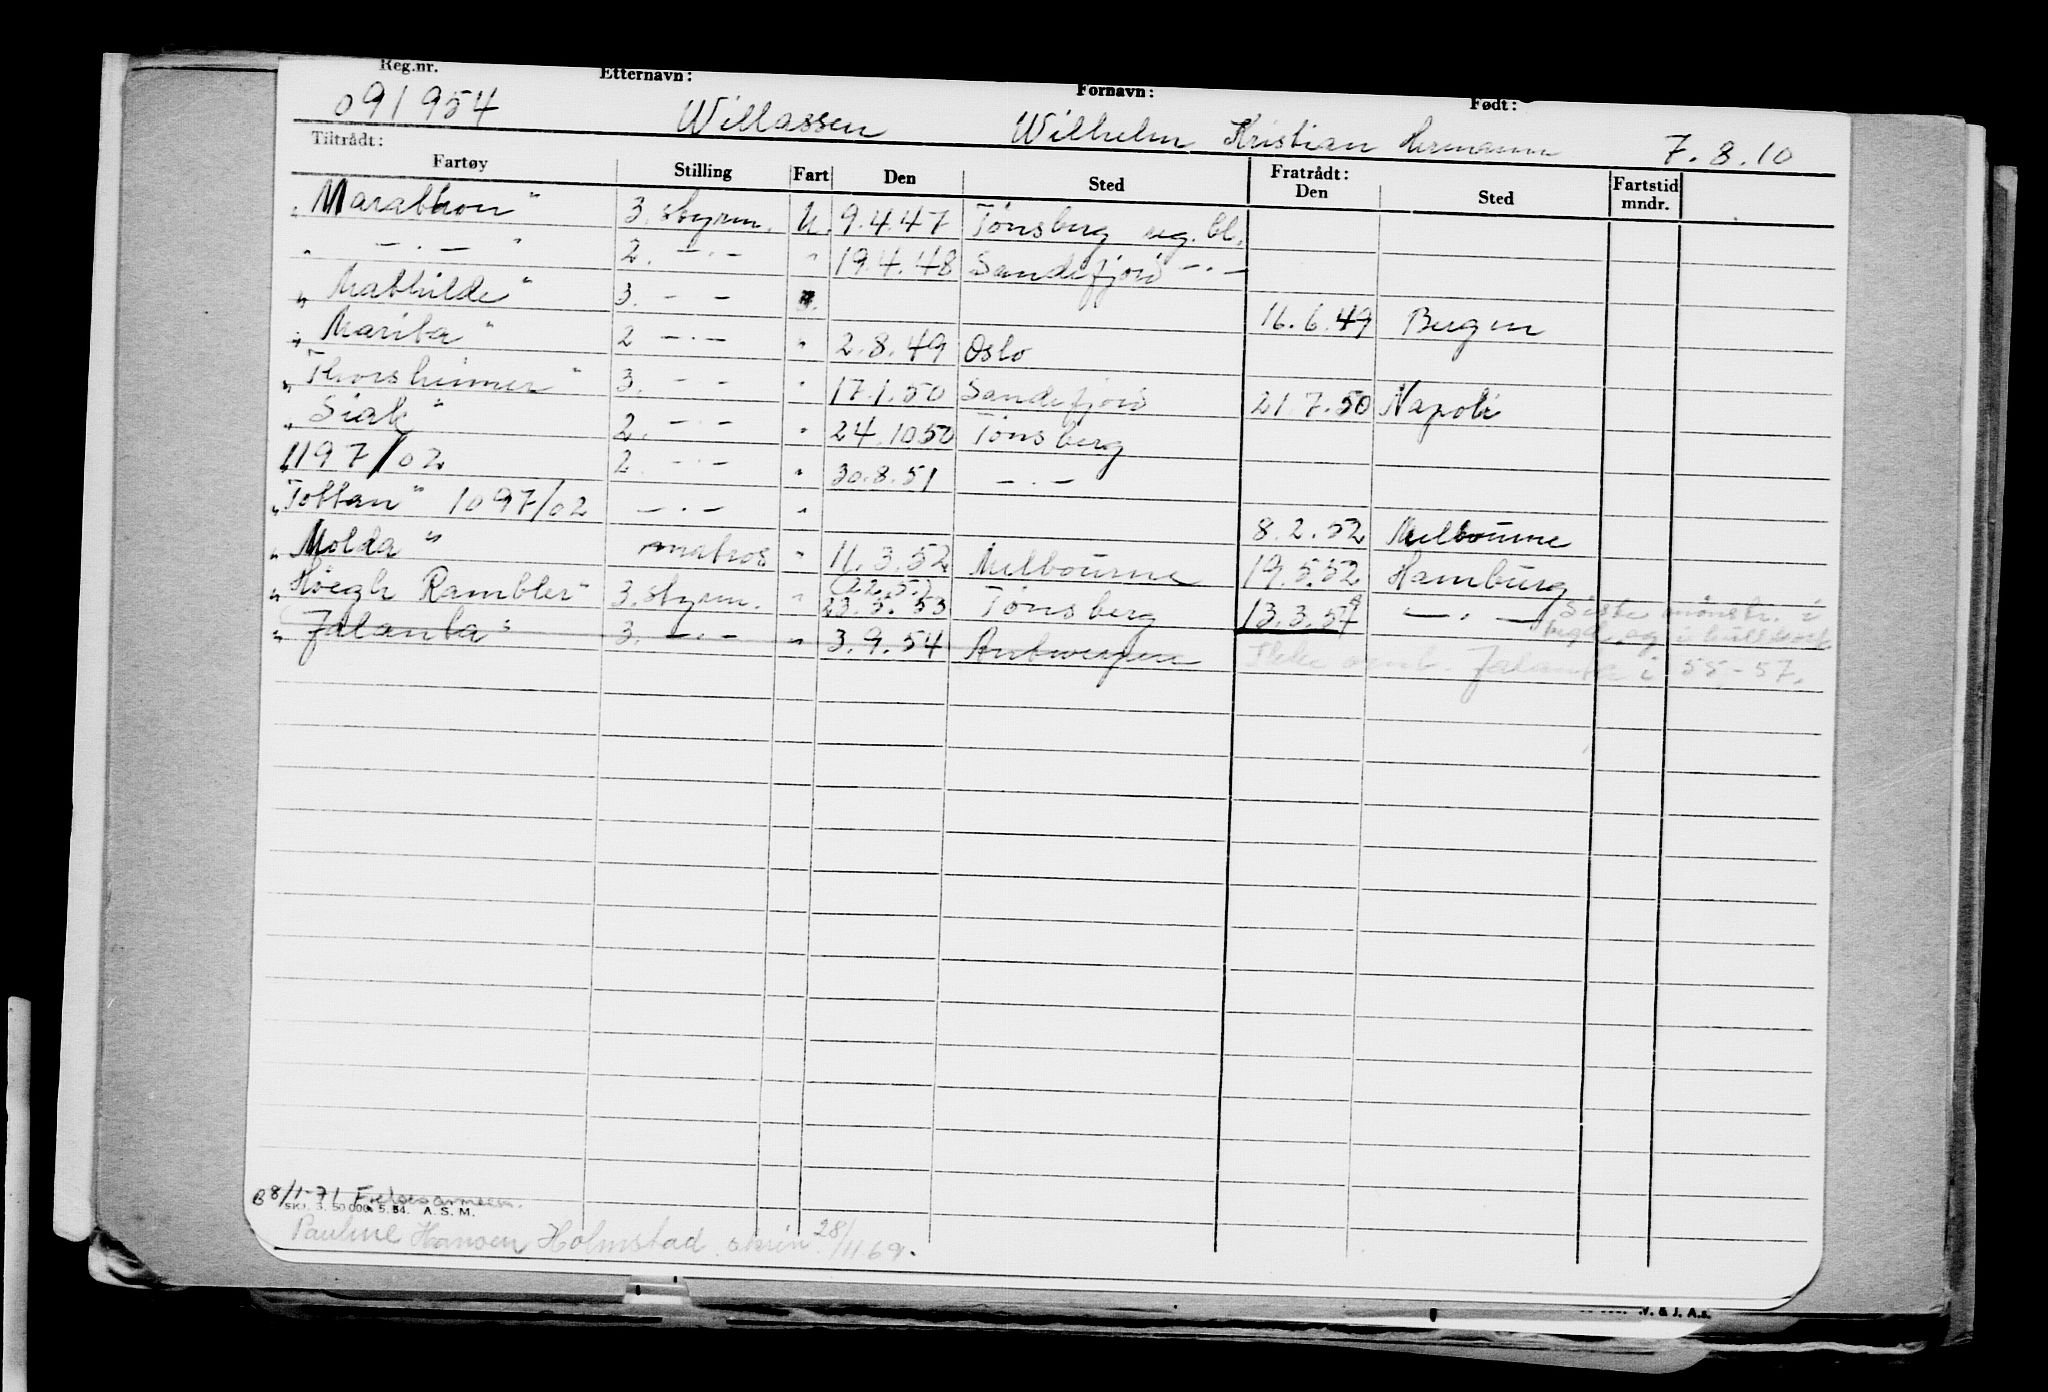 Reg.nr. Etternavn: Fornavn: Født:
091954 Willassen Wilhelm Kristian Hermann 7.8.10
Tiltrådt: Fratrådt:
Fartøy Stilling Fart Den Sted Den Sted Fartstid mndr.
„Marathon" 3. styrm. U. 9.4.47 Tønsberg reg. bl.
„ —·— " 2. —·— " 19.4.48 Sandefjord —·—
„Mathilde" 3. — — 16.6.49 Bergen
„Marita" 2 —·— " 2.8.49 Oslo
„Thorsheimer" 3. — — " 17.1.50 Sandefjord 21.7.50 Napoli
„Siak" 2. —·— " 24.10 50 Tønsberg
1197/02 2. —·— " 30.8.51 —·—
„Tottan" 1097/02 —·— " 8.2.52 Melbourne
„Molda" matros " 11.3.52 Melbourne 19.5.52 Hamburg
„Høegh Rambler" 3. styrm. " (22.5.) 23.5.53 Tønsberg 13.3.54 —·— Siste mønstr. i
„Jalanta" 3. —·— " 3.9.54 Antwerpen Ikke omb. Jalanta i 55-57.
B 8/1-71
SKJ. 3. 50 000. 5.54. A. S. M.
Pauline Hansen Holmstad skriv 28/11 69.